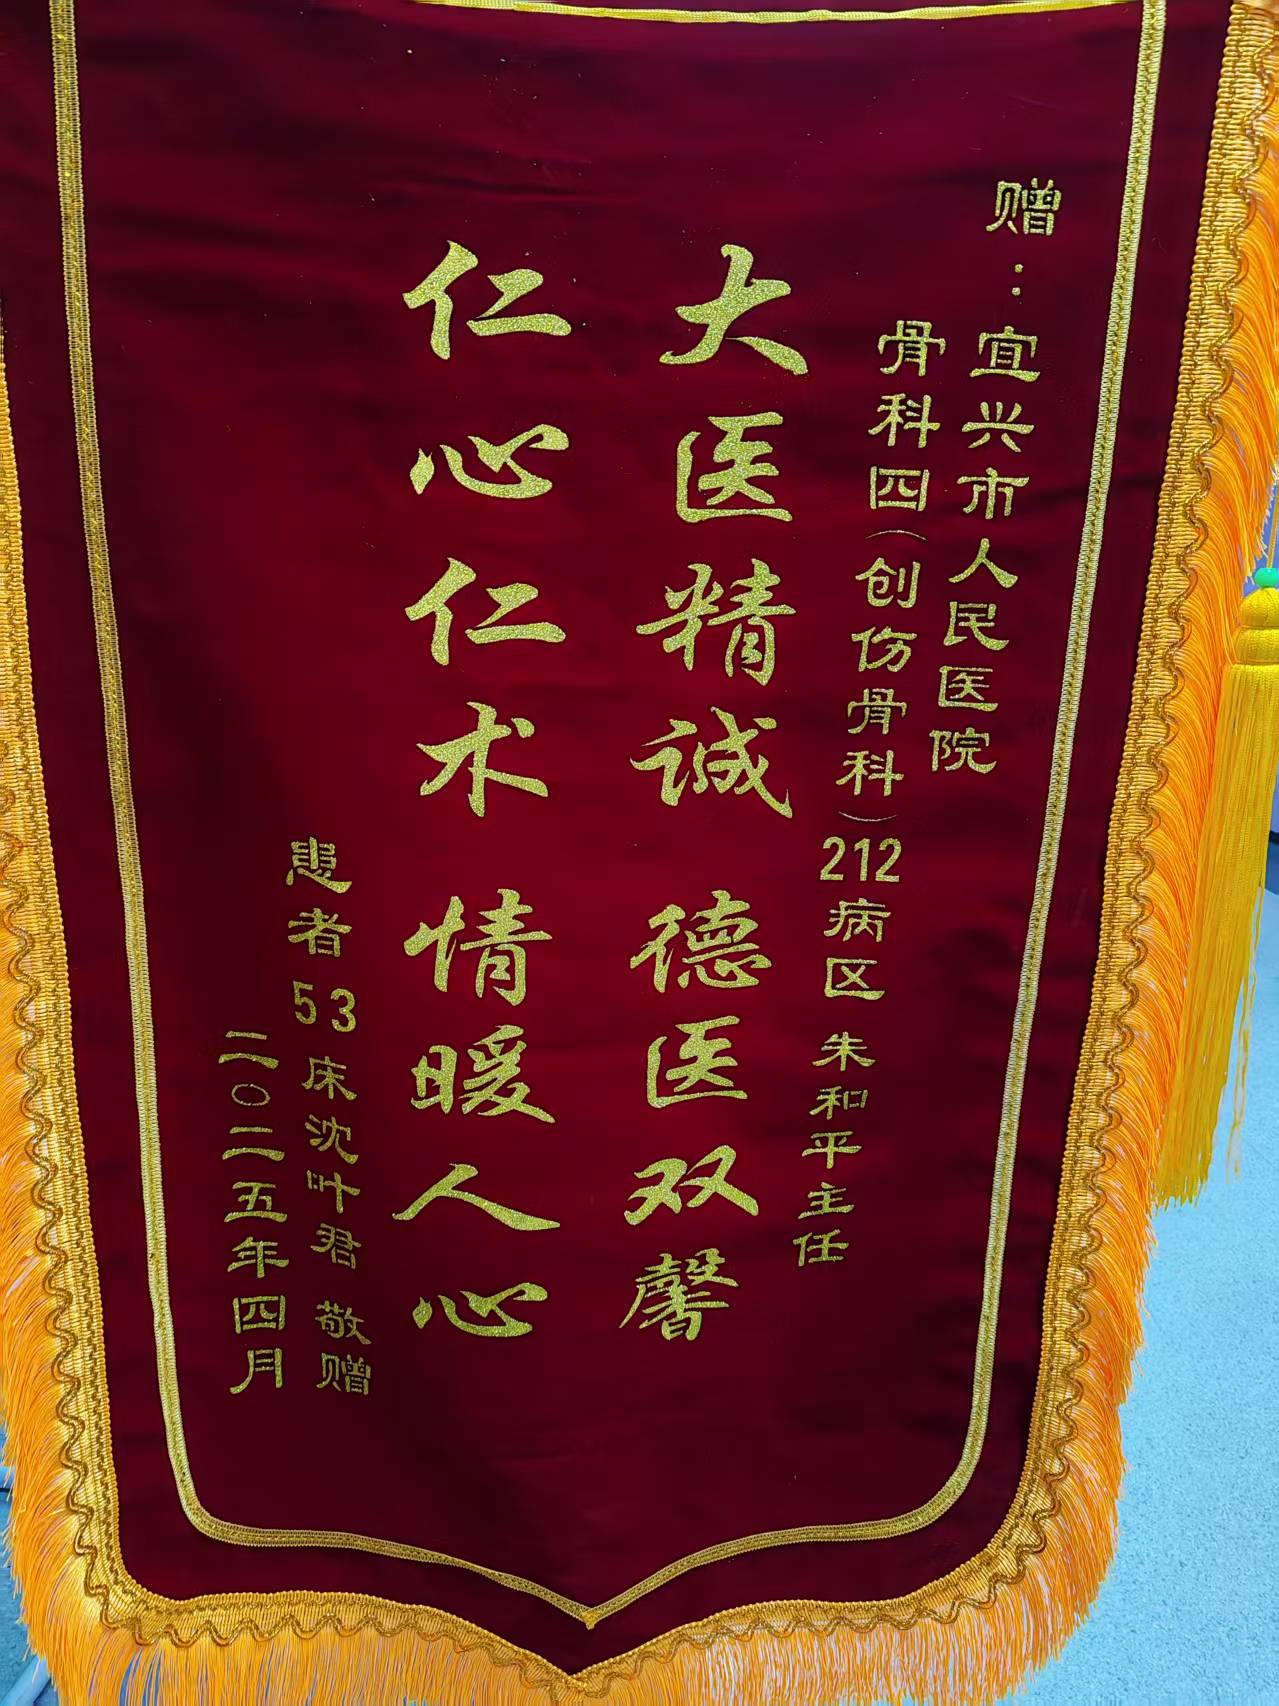 赠：宜兴市人民医院
骨科四(创伤骨科)212病区 朱和平主任
大医精诚 德医双馨
仁心仁术 情暖人心
患者53床沈叶君 敬赠
二〇二五年四月